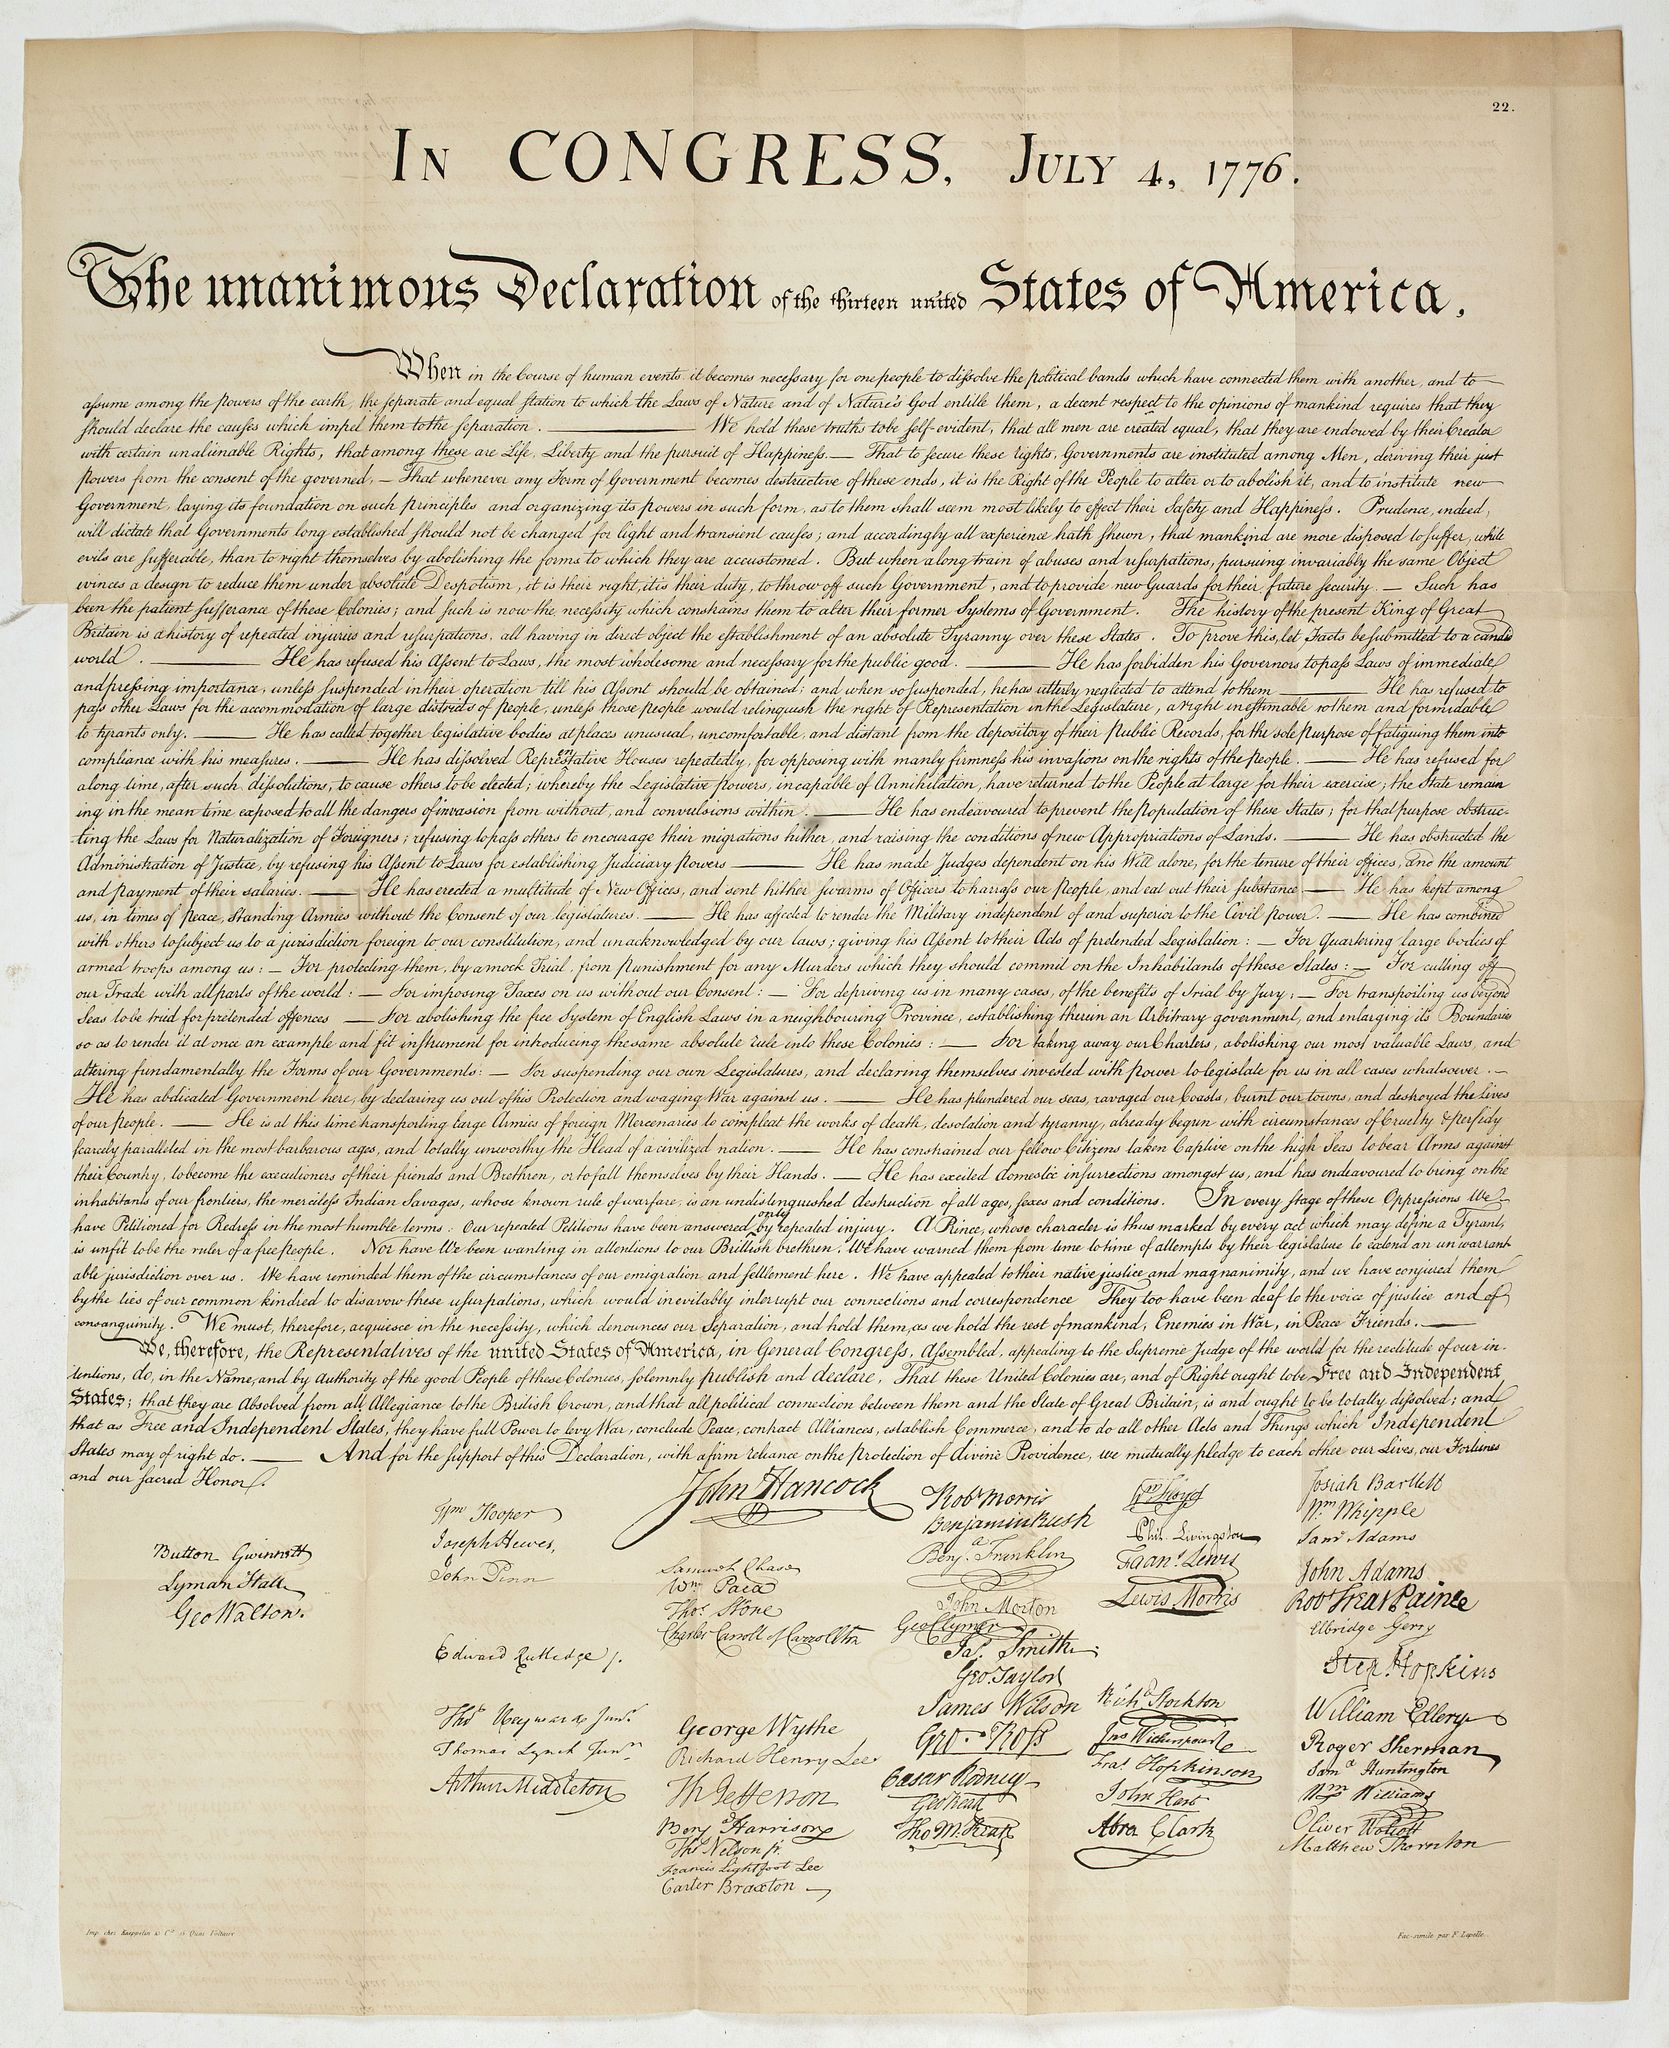 22.
IN CONGRESS, JULY 4, 1776.
The unanimous Declaration of the thirteen united States of America,
When in the Course of human events it becomes necessary for one people to dissolve the political bands which have connected them with another, and to
assume among the powers of the earth, the separate and equal station to which the Laws of Nature and of Nature's God entitle them, a decent respect to the opinions of mankind requires that they
should declare the causes which impel them to the separation. — We hold these truths to be self-evident, that all men are created equal, that they are endowed by their Creator
with certain unalienable Rights, that among these are Life, Liberty and the pursuit of Happiness. — That to secure these rights, Governments are instituted among Men, deriving their just
powers from the consent of the governed, — That whenever any Form of Government becomes destructive of these ends, it is the Right of the People to alter or to abolish it, and to institute new
Government, laying its foundation on such principles and organizing its powers in such form, as to them shall seem most likely to effect their Safety and Happiness. Prudence, indeed,
will dictate that Governments long established should not be changed for light and transient causes; and accordingly all experience hath shewn, that mankind are more disposed to suffer, while
evils are sufferable, than to right themselves by abolishing the forms to which they are accustomed. But when a long train of abuses and usurpations, pursuing invariably the same Object
evinces a design to reduce them under absolute Despotism, it is their right, it is their duty, to throw off such Government, and to provide new Guards for their future security. — Such has
been the patient sufferance of these Colonies; and such is now the necessity which constrains them to alter their former Systems of Government. The history of the present King of Great
Britain is a history of repeated injuries and usurpations, all having in direct object the establishment of an absolute Tyranny over these States. To prove this, let Facts be submitted to a candid
world. — He has refused his Assent to Laws, the most wholesome and necessary for the public good. — He has forbidden his Governors to pass Laws of immediate
and pressing importance, unless suspended in their operation till his Assent should be obtained; and when so suspended, he has utterly neglected to attend to them — He has refused to
pass other Laws for the accommodation of large districts of people, unless those people would relinquish the right of Representation in the Legislature, a right inestimable to them and formidable
to tyrants only. — He has called together legislative bodies at places unusual, uncomfortable, and distant from the depository of their Public Records, for the sole purpose of fatiguing them into
compliance with his measures. — He has dissolved Representative Houses repeatedly, for opposing with manly firmness his invasions on the rights of the people. — He has refused for
a long time, after such dissolutions, to cause others to be elected; whereby the Legislative powers, incapable of Annihilation, have returned to the People at large for their exercise; the State remain
ing in the mean time exposed to all the dangers of invasion from without, and convulsions within. — He has endeavoured to prevent the population of these States; for that purpose obstruc-
-ting the Laws for Naturalization of Foreigners; refusing to pass others to encourage their migrations hither, and raising the conditions of new Appropriations of Lands. — He has obstructed the
Administration of Justice, by refusing his Assent to Laws for establishing Judiciary powers — He has made Judges dependent on his Will alone, for the tenure of their offices, and the amount
and payment of their salaries. — He has erected a multitude of New Offices, and sent hither swarms of Officers to harrass our People, and eat out their substance — He has kept among
us, in times of peace, Standing Armies without the Consent of our legislatures. — He has affected to render the Military independent of and superior to the Civil power. — He has combined
with others to subject us to a jurisdiction foreign to our constitution, and unacknowledged by our laws; giving his Assent to their Acts of pretended Legislation: — For Quartering large bodies of
armed troops among us: — For protecting them, by a mock Trial, from punishment for any Murders which they should commit on the Inhabitants of these States: — For cutting off
our Trade with all parts of the world: — For imposing Taxes on us without our Consent: — For depriving us in many cases, of the benefits of Trial by Jury; — For transporting us beyond
Seas to be tried for pretended offences — For abolishing the free System of English Laws in a neighbouring Province, establishing therein an Arbitrary government, and enlarging its Boundaries
so as to render it at once an example and fit instrument for introducing the same absolute rule into these Colonies: — For taking away our Charters, abolishing our most valuable Laws, and
altering fundamentally the Forms of our Governments: — For suspending our own Legislatures, and declaring themselves invested with power to legislate for us in all cases whatsoever. —
He has abdicated Government here, by declaring us out of his Protection and waging War against us. — He has plundered our seas, ravaged our Coasts, burnt our towns, and destroyed the lives
of our people. — He is at this time transporting large Armies of foreign Mercenaries to compleat the works of death, desolation and tyranny, already begun with circumstances of Cruelty & perfidy
scarcely paralleled in the most barbarous ages, and totally unworthy the Head of a civilized nation. — He has constrained our fellow Citizens taken Captive on the high Seas to bear Arms against
their Country, to become the executioners of their friends and Brethren, or to fall themselves by their Hands. — He has excited domestic insurrections amongst us, and has endeavoured to bring on the
inhabitants of our frontiers, the merciless Indian Savages, whose known rule of warfare, is an undistinguished destruction of all ages, sexes and conditions. In every stage of these Oppressions We
have Petitioned for Redress in the most humble terms: Our repeated Petitions have been answered only by repeated injury. A Prince, whose character is thus marked by every act which may define a Tyrant,
is unfit to be the ruler of a free people. Nor have We been wanting in attentions to our Brittish brethren. We have warned them from time to time of attempts by their legislature to extend an unwarrant
able jurisdiction over us. We have reminded them of the circumstances of our emigration and settlement here. We have appealed to their native justice and magnanimity, and we have conjured them
by the ties of our common kindred to disavow these usurpations, which would inevitably interrupt our connections and correspondence They too have been deaf to the voice of justice and of
consanguinity. We must, therefore, acquiesce in the necessity, which denounces our Separation, and hold them, as we hold the rest of mankind, Enemies in War, in Peace Friends. —
We, therefore, the Representatives of the united States of America, in General Congress, Assembled, appealing to the Supreme Judge of the world for the rectitude of our in-
tentions, do, in the Name, and by Authority of the good People of these Colonies, solemnly publish and declare, That these United Colonies are, and of Right ought to be Free and Independent
States; that they are Absolved from all Allegiance to the British Crown, and that all political connection between them and the State of Great Britain, is and ought to be totally dissolved; and
that as Free and Independent States, they have full Power to levy War, conclude Peace, contract Alliances, establish Commerce, and to do all other Acts and Things which Independent
States may of right do. — And for the support of this Declaration, with a firm reliance on the protection of divine Providence, we mutually pledge to each other our Lives, our Fortunes
and our sacred Honor.
Button Gwinnett
Lyman Hall
Geo Walton.
Wm Hooper
Joseph Hewes,
John Penn
Edward Rutledge /.
Thos Heyward Junr.
Thomas Lynch Junr.
Arthur Middleton
John Hancock
Samuel Chase
Wm Paca
Thos. Stone
Charles Carroll of Carrollton
George Wythe
Richard Henry Lee
Th Jefferson
Benja Harrison
Thos Nelson jr.
Francis Lightfoot Lee
Carter Braxton
Robt Morris
Benjamin Rush
Benja. Franklin
John Morton
Geo Clymer
Jas. Smith
Geo. Taylor
James Wilson
Geo. Ross
Caesar Rodney
Geo Read
Tho M:Kean
Wm Floyd
Phil. Livingston
Frans. Lewis
Lewis Morris
Richd Stockton
Jno Witherspoon
Fras. Hopkinson
John Hart
Abra Clark
Josiah Bartlett
Wm Whipple
Saml Adams
John Adams
Robt Treat Paine
Elbridge Gerry
Step. Hopkins
William Ellery
Roger Sherman
Saml Huntington
Wm Williams
Oliver Wolcott
Matthew Thornton
Imp. chez Kaeppelin & Cie 15 Quai Voltaire
Fac-simile par F. Lepelle.